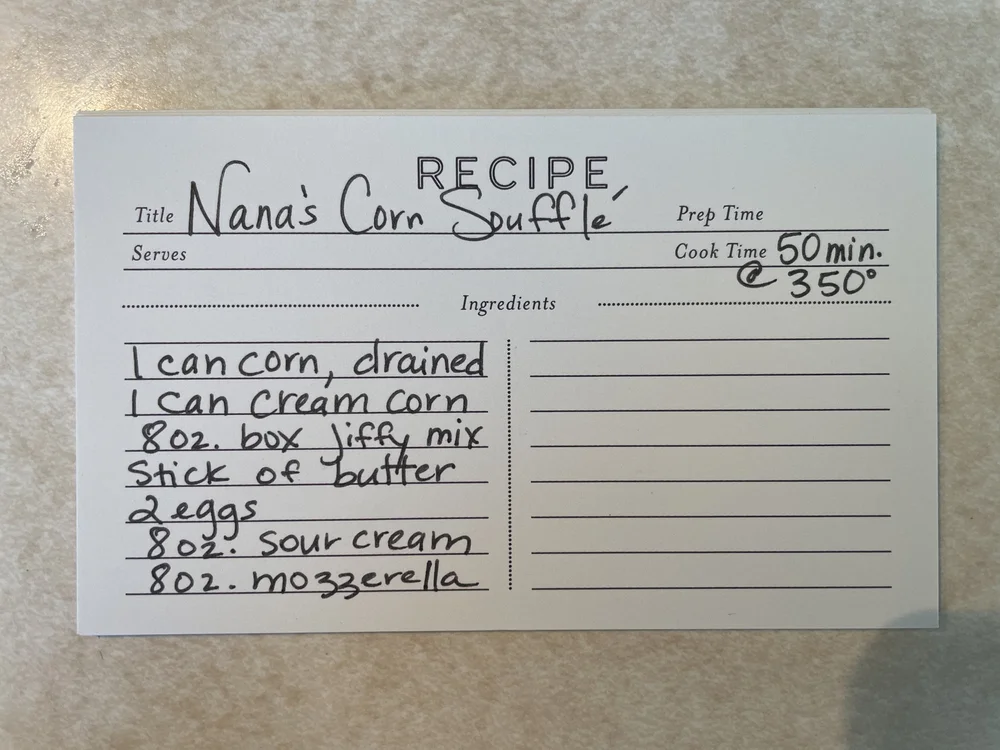 RECIPE
Title Nana's Corn Soufflé
Prep Time
Serves
Cook Time 50 min.
@ 350°
Ingredients
1 can corn, drained
1 can cream corn
8oz. box Jiffy mix
Stick of butter
2 eggs
8oz. sour cream
8oz. mozzerella